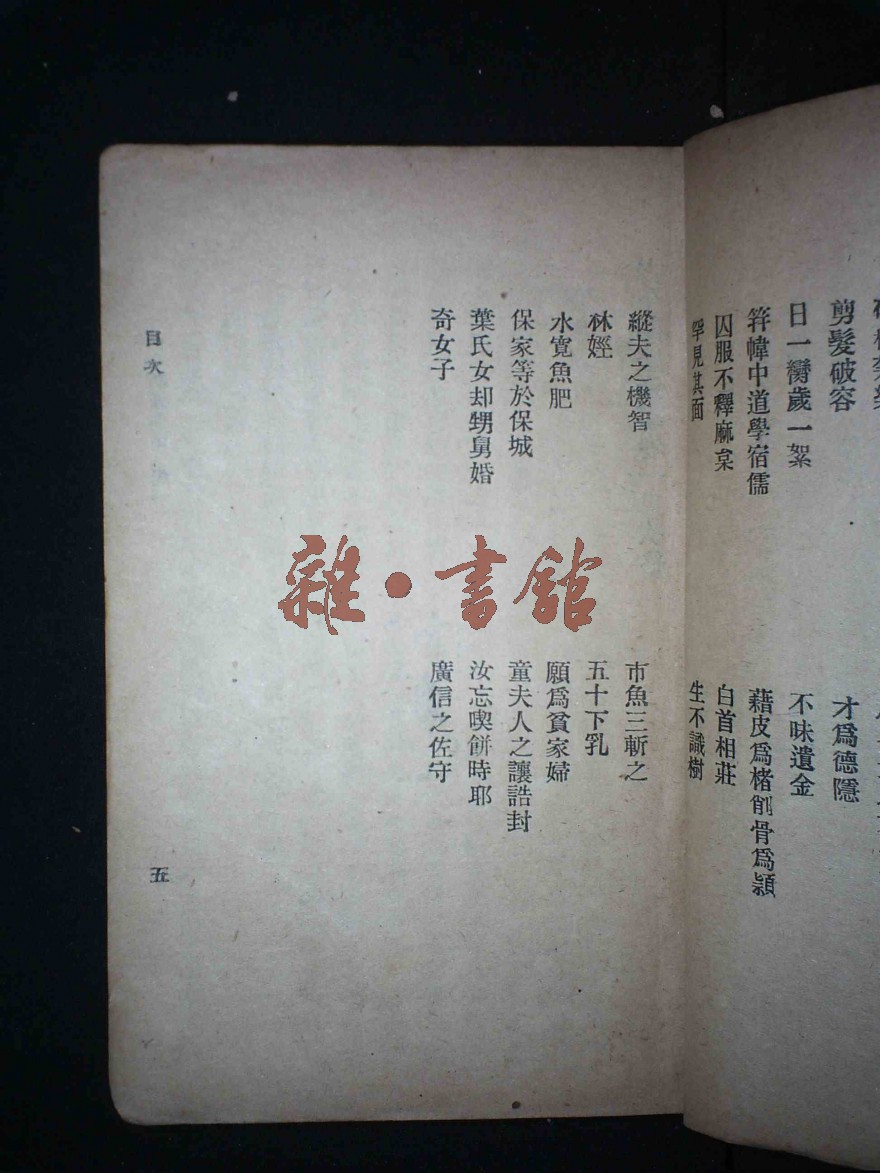 剪髮破容
才爲德隱
日一臠歲一絮
不昧遺金
笄幃中道學宿儒
藉皮爲楮削骨爲潁
囚服不釋麻枲
白首相莊
罕見其面
生不識樹
縱夫之機智
市魚三斬之
林娙
五十下乳
水寬魚肥
願爲貧家婦
保家等於保城
童夫人之讓誥封
葉氏女却甥舅婚
汝忘喫餅時耶
奇女子
廣信之佐守
目次
五
雜·書館